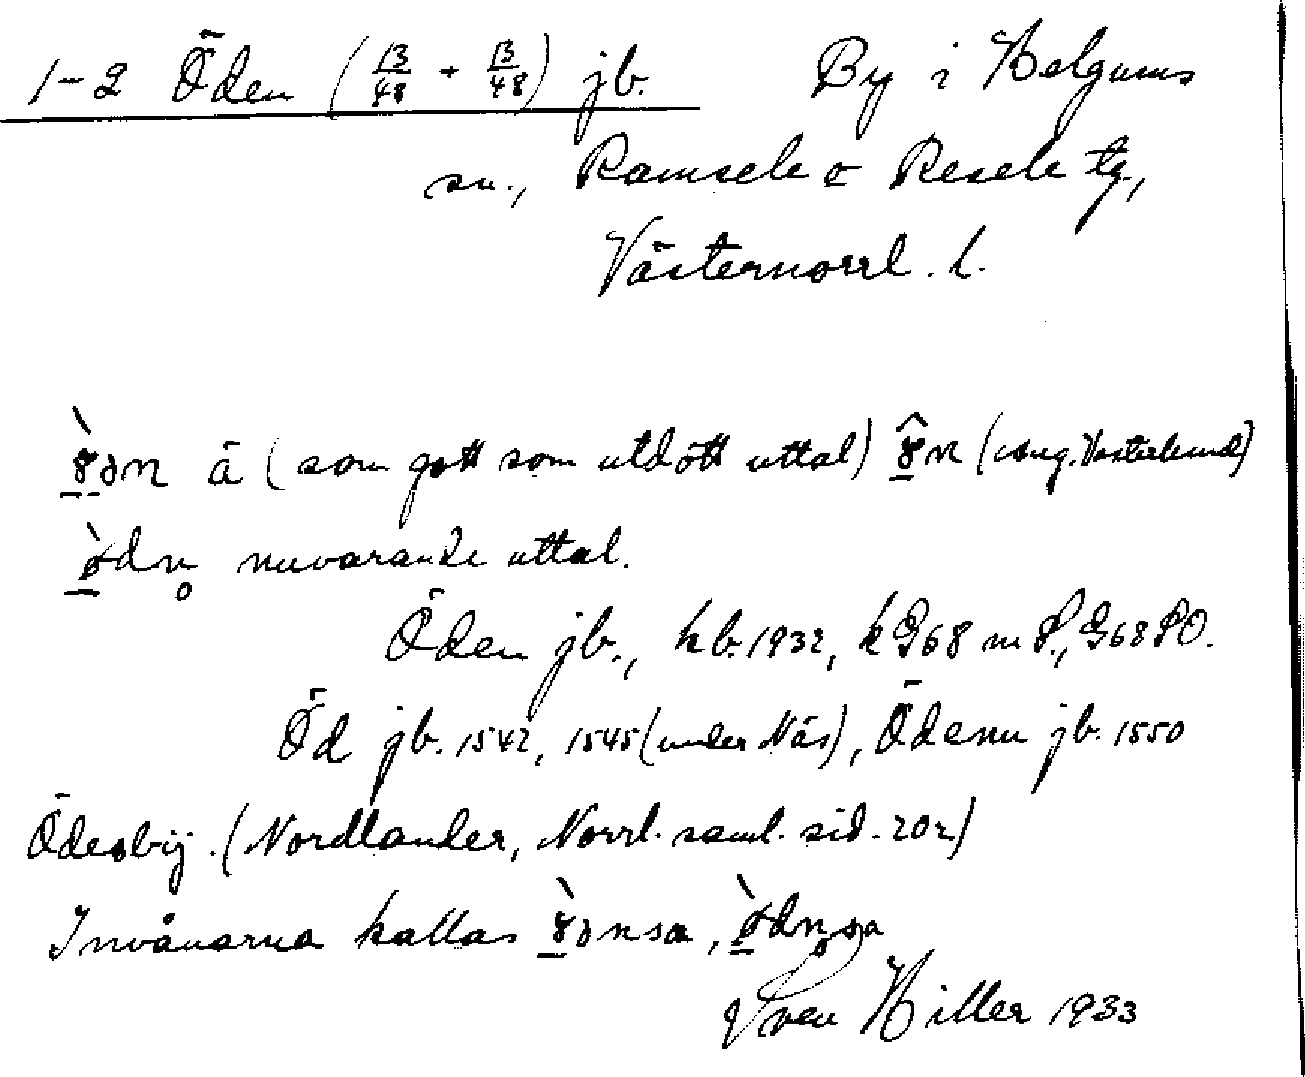 1-2 Öden (13/48 + 13/48) jb. By i Helgums
sn., Ramsele o Resele tg.,
Västernorrl. l.
ȣ̀ən å (som gott som utdött uttal) ȣ̂n
ø̀dn̥ nuvarande uttal.
Öden jb., kb. 1932, kG68 m P., G68PO.
Öd jb. 1542, 1545 (under Näs), Ödenn jb. 1550
Ödesbÿ. (Nordlander, Norrl. saml. sid. 202)
Invånarna kallas ȣ̀ənsa, ø̀dn̥sa
Sven Hiller 1933